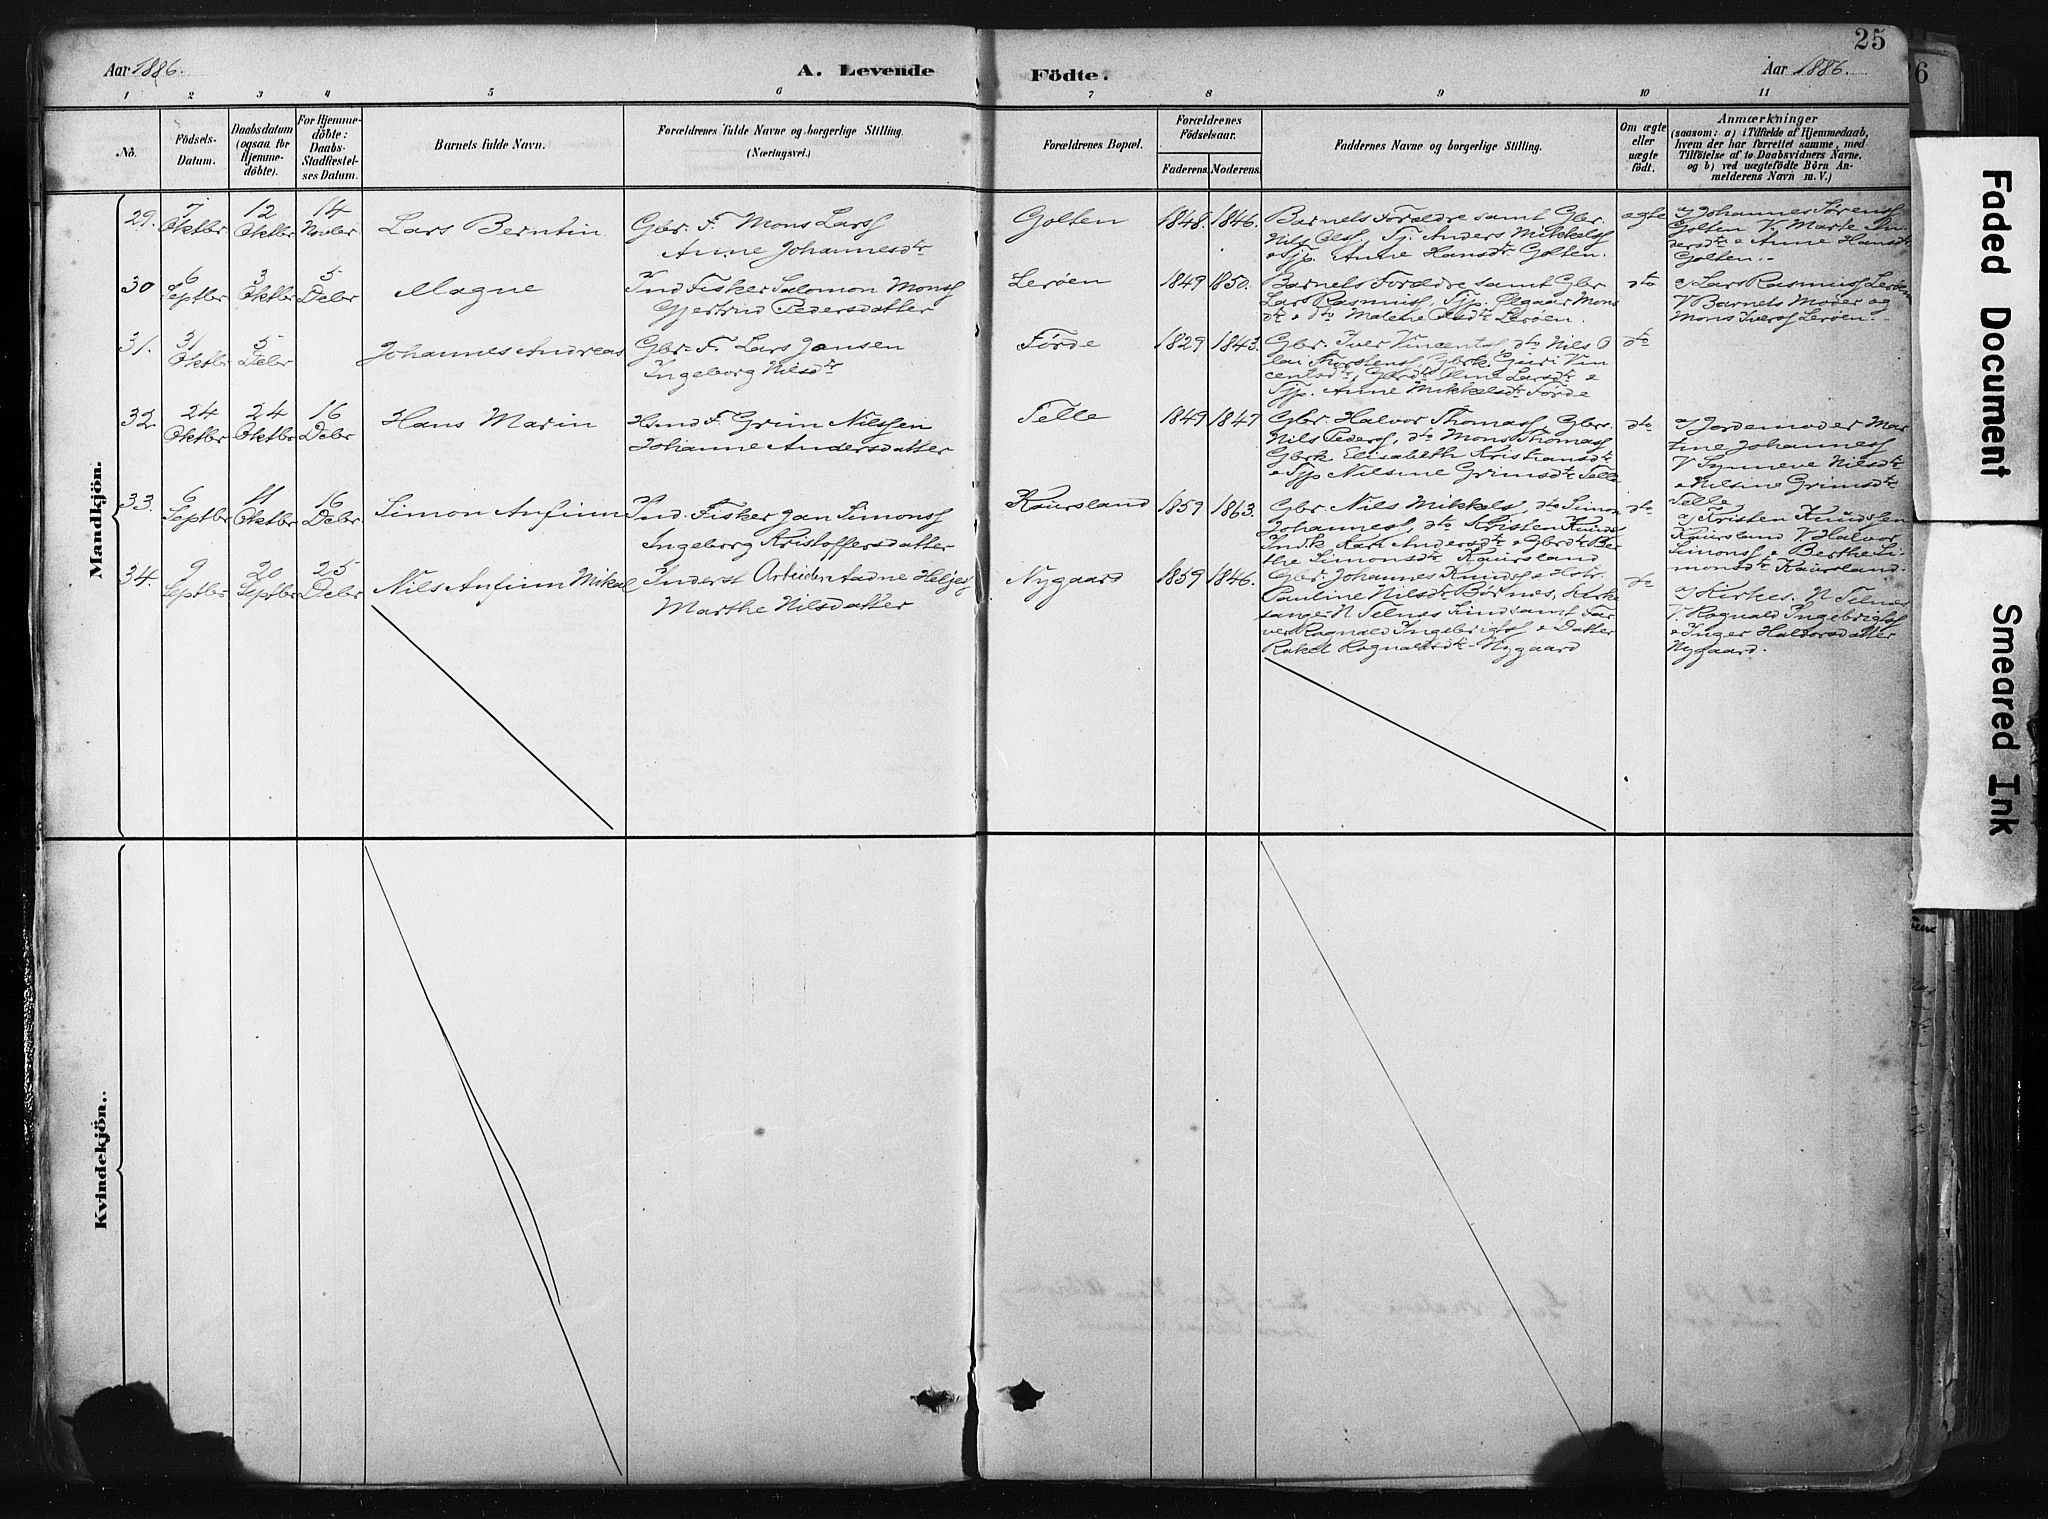 25
Aar 1886.
A. Levende Födte.
Aar 1886.
6
1 2 3 4 5 6 7 8 9 10 11
No.
Födsels-
Datum.
Daabsdatum
(ogsaa for
Hjemme-
döbte).
For Hjemme-
döbte:
Daabs-
Stadfæstel-
ses Datum.
Barnets fulde Navn.
Forældrenes fulde Navne og borgerlige Stilling.
(Næringsvei.)
Forældrenes Bopæl.
Forældrenes
Födselsaar.
Faderens. Moderens.
Faddernes Navne og borgerlige Stilling.
Om ægte
eller
uægte
födt.
Anmærkninger
(saasom: a) i Tilfælde af Hjemmedaab,
hvem der har forrettet samme, med
Tilföielse af to Daabsvidners Navne,
og b) ved uægtefödte Börn An-
melderens Navn m. V.)
Mandkjön.
29. 7 Oktbr 12 Oktbr 14 Novbr
Lars Berntin
Gbr. F. Mons Larss
Anne Johannesdtr
Golten
1848. 1846.
Barnets Forældre samt Gbr.
Nils Olss, Tj. Anders Mikkelss
o Tjp. Anne Hansdtr Golten.
ægte
a) Johannes Sørenss
Golten V. Marte An-
dersdtr o Anne Hansdtr
Golten.
30 6 Septbr 3 Oktbr 5 Debr
Magne
Ind Fisker Salomon Monss
Gjertrud Pedersdatter
Lerøen
1849 1850.
Barnets Forældre samt Gbr
Lars Rasmuss, Tjp. Olgaar Mons
dtr o dto Malene Olsdtr Lerøen.
dto
a) Lars Rasmuss Lerøen
V Barnets Moder og
Mons Iverss Lerøen.
31. 31 Oktbr 5 Debr
Johannes Andreas
Gbr. F. Lars Jansen
Ingeborg Nilsdtr
Førde
1829 1843.
Gbr. Iver Vincentss, dto Nils O
lai Torstenss, Gbrk Guri Vin
centsdtr, Gbrdtr Oline Larsdtr o
Tjp. Anne Mikkelsdtr Førde
dto
32 24 Oktbr 24 Oktbr 16 Debr
Hans Marin
Hsmd F. Grim Nilssen
Johanne Andersdatter
Telle
1849 1847
Gbr. Halvor Thomass, Gbrs.
Nils Pederss, dto Mons Thomass
Gbrk Elisabeth Kristiansdtr
o Tjp Nilsine Grimsdtr Telle
dto
a) Jordemoder Mar-
tine Johanness
V Synneve Nilsdtr
o Nilsine Grimsdtr
Telle
33. 6 Septbr 11 Oktbr 16 Debr
Simon Anfinn
Ind. Fisker Jan Simonss
Ingeborg Kristoffersdatter
Kaursland
1859 1863.
Gbr. Nils Mikkels, dto Simon
Johanness, dto Kristen Knuds
Ind.k Kari Andersdtr o Gbrdtr Ber-
the Simonsdtr Kaursland
dto
a) Kristen Knudsen
Kaursland V. Halvor
Simonss o Berthe Si-
monsdtr Kaursland.
34. 9 Septbr 20 Septbr 25 Debr
Nils Anfinn Mikal
Inderst Arbeider Aadne Heljes
Marthe Nilsdatter
Nygaard
1859 1846.
Gbr. Johannes Knudss o Hstr.
Pauline Nilsdtr Børnes, Kirke
sang. N Telnes Sund samt
Rognald Ingebrigtss o Datter
Rakel Rognaldsdtr Nygaard
dto
a) Kirkes. N Telnes
V. Rognald Ingebrigtss
o Inger Haldorsdatter
Nygaard.
Kvindekjön.
Faded Document
Smeared Ink